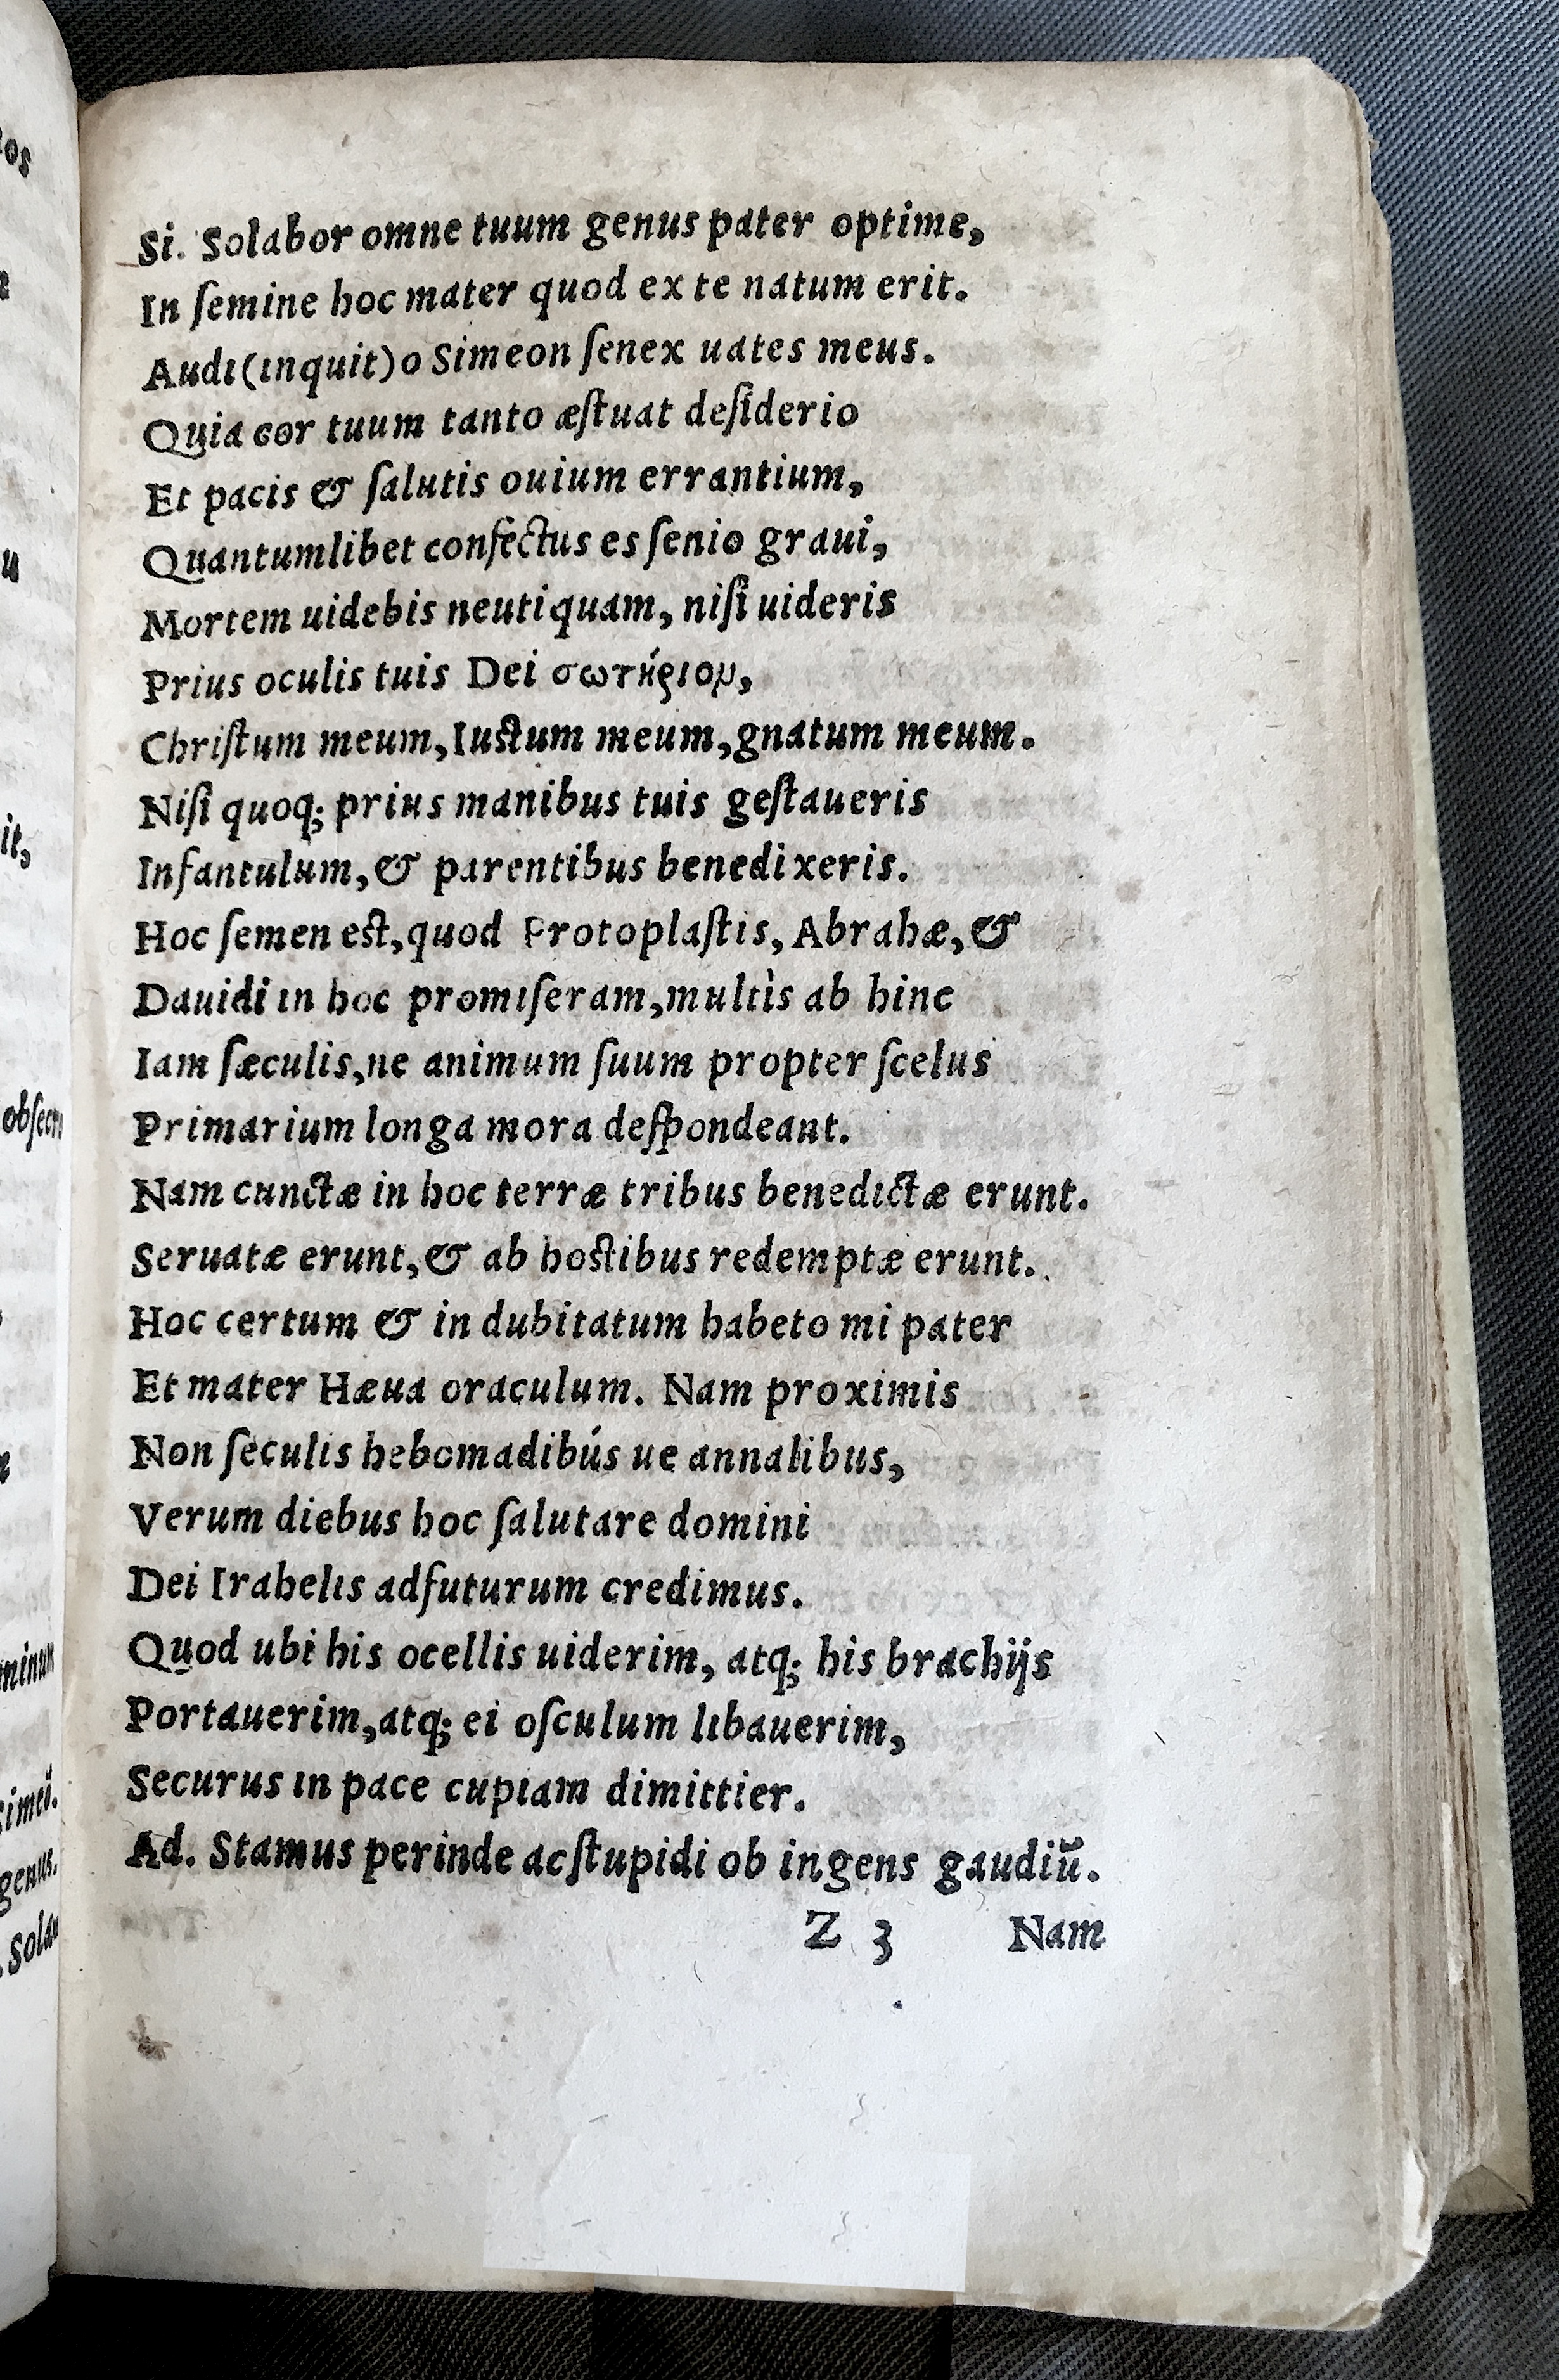 Si. Solabor omne tuum genus pater optime,
In ſemine hoc mater quod ex te natum erit.
Audi (inquit) o Simeon ſenex uates meus.
Quia cor tuum tanto æſtuat deſiderio
Et pacis & ſalutis ouium errantium,
Quantumlibet confectus es ſenio graui,
Mortem uidebis neutiquam, niſi uideris
Prius oculis tuis Dei σωτήριον,
Chriſtum meum, Iustum meum, gnatum meum.
Niſi quoq; prius manibus tuis geſtaueris
Infantulum, & parentibus benedixeris.
Hoc ſemen est, quod Protoplaſtis, Abrahæ, &
Dauidi in hoc promiſeram, multìs ab hinc
Iam ſæculis, ne animum ſuum propter ſcelus
Primarium longa mora deſpondeant.
Nam cunctæ in hoc terræ tribus benedictæ erunt.
Seruatæ erunt, & ab hostibus redemptæ erunt.
Hoc certum & in dubitatum habeto mi pater
Et mater Hæua oraculum. Nam proximis
Non ſeculis hebomadibús ue annalibus,
Verum diebus hoc ſalutare domini
Dei Irahelis adfuturum credimus.
Quod ubi his ocellis uiderim, atq; his brachijs
Portauerim, atq; ei oſculum libauerim,
Securus in pace cupiam dimittier.
Ad. Stamus perinde ac ſtupidi ob ingens gaudiũ.
Z 3 Nam